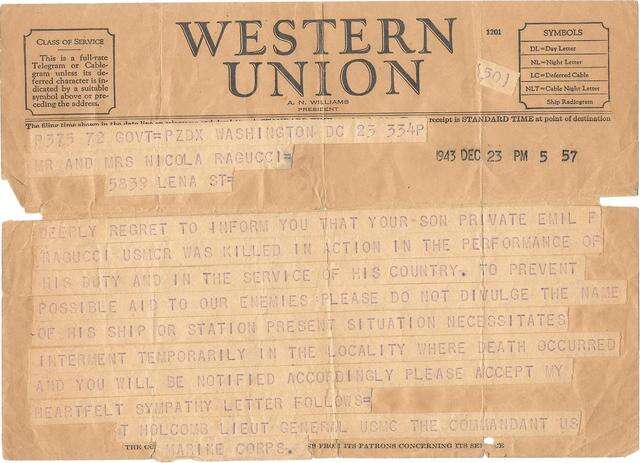 CLASS OF SERVICE
This is a full-rate
Telegram or Cable-
gram unless its de-
ferred character is in-
dicated by a suitable
symbol above or pre-
ceding the address.
WESTERN
UNION
A. N. WILLIAMS
PRESIDENT
1201
(50)
SYMBOLS
DL=Day Letter
NL=Night Letter
LC=Deferred Cable
NLT=Cable Night Letter
Ship Radiogram
The filing time shown in the date line on receipt is STANDARD TIME at point of destination
R375 72 GOVT=PZDX WASHINGTON DC 23 334P
MR AND MRS NICOLA RAGUCCI=
5839 LENA ST=
1943 DEC 23 PM 5 57
DEEPLY REGRET TO INFORM YOU THAT YOUR SON PRIVATE EMIL F
RAGUCCI USMCR WAS KILLED IN ACTION IN THE PERFORMANCE OF
HIS DUTY AND IN THE SERVICE OF HIS COUNTRY. TO PREVENT
POSSIBLE AID TO OUR ENEMIES PLEASE DO NOT DIVULGE THE NAME
OF HIS SHIP OR STATION PRESENT SITUATION NECESSITATES
INTERMENT TEMPORARILY IN THE LOCALITY WHERE DEATH OCCURRED
AND YOU WILL BE NOTIFIED ACCORDINGLY PLEASE ACCEPT MY
HEARTFELT SYMPATHY LETTER FOLLOWS=
T HOLCOMB LIEUT GENERAL USMC THE COMMANDANT US
MARINE CORPS.
THE FROM ITS PATRONS CONCERNING ITS SERVICE